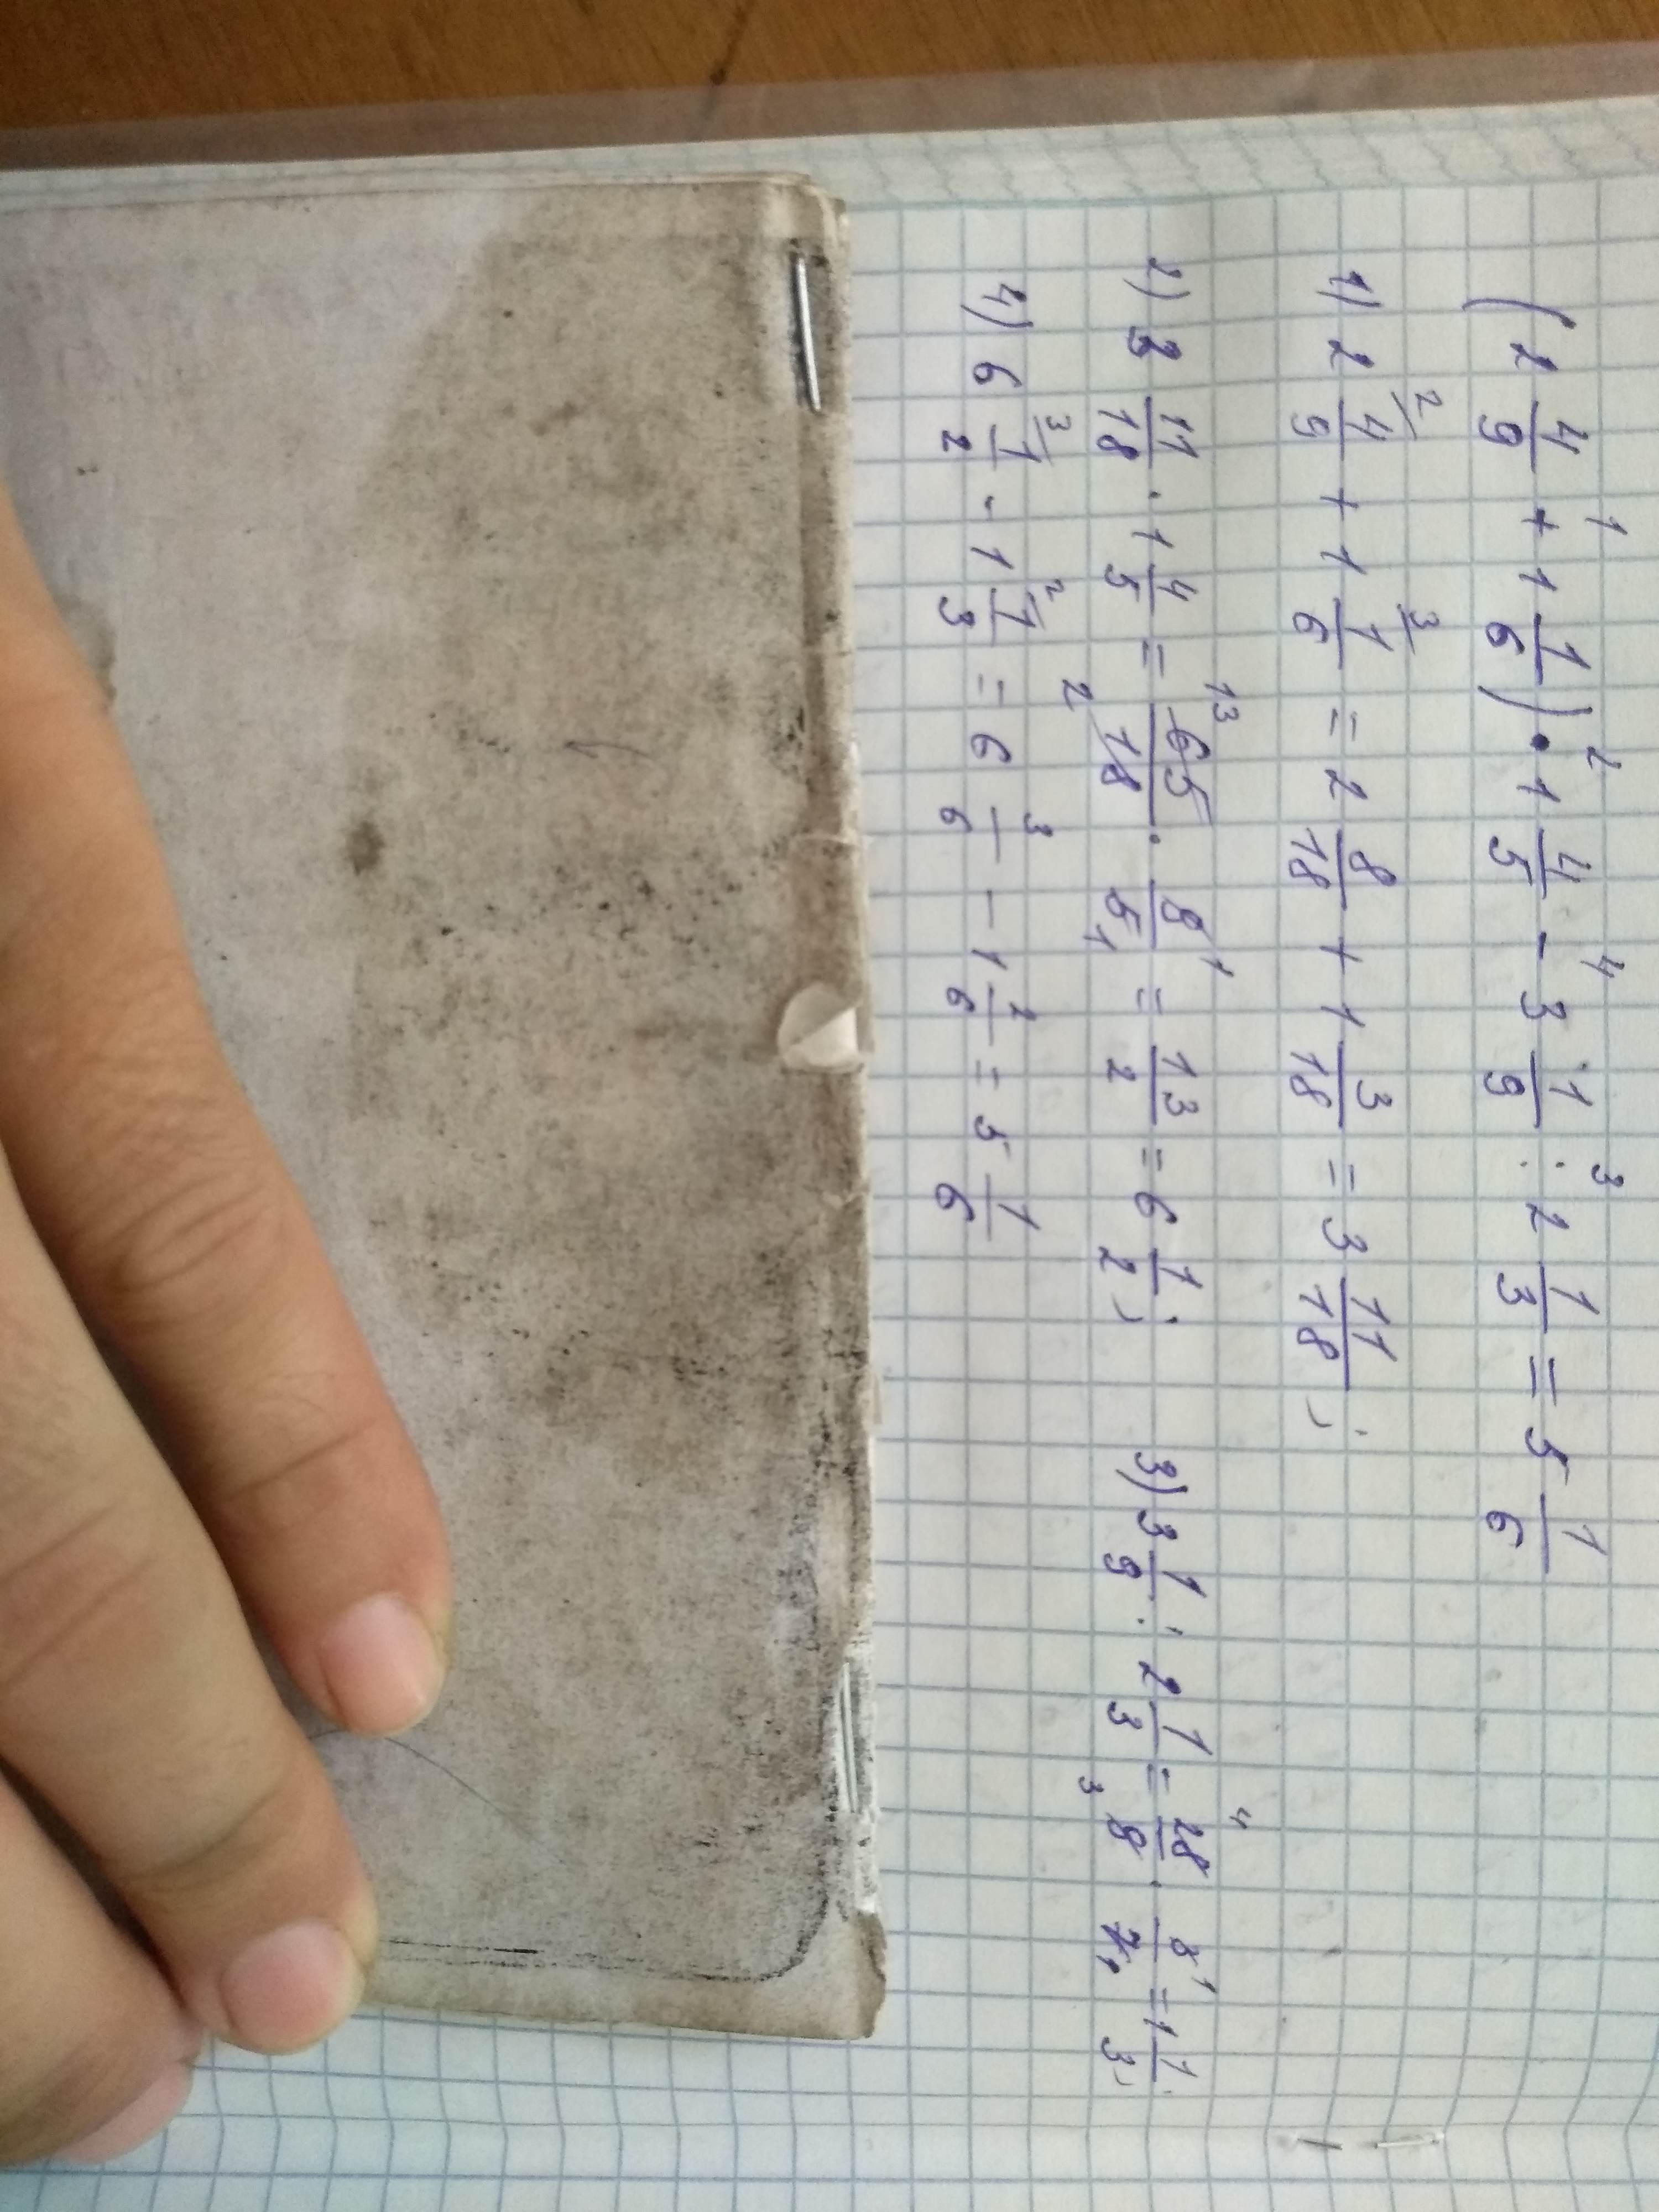 (2 4/9 + 1 1/6) · 1 4/5 - 3 1/9 : 2 1/3 = 5 1/6
1) 2 4/9 + 1 1/6 = 2 8/18 + 1 3/18 = 3 11/18;
2) 3 11/18 · 1 4/5 = 65/18 · 9/5 = 13/2 = 6 1/2;
3) 3 1/9 : 2 1/3 = 28/9 · 3/7 = 1 1/3;
4) 6 1/2 - 1 1/3 = 6 3/6 - 1 2/6 = 5 1/6